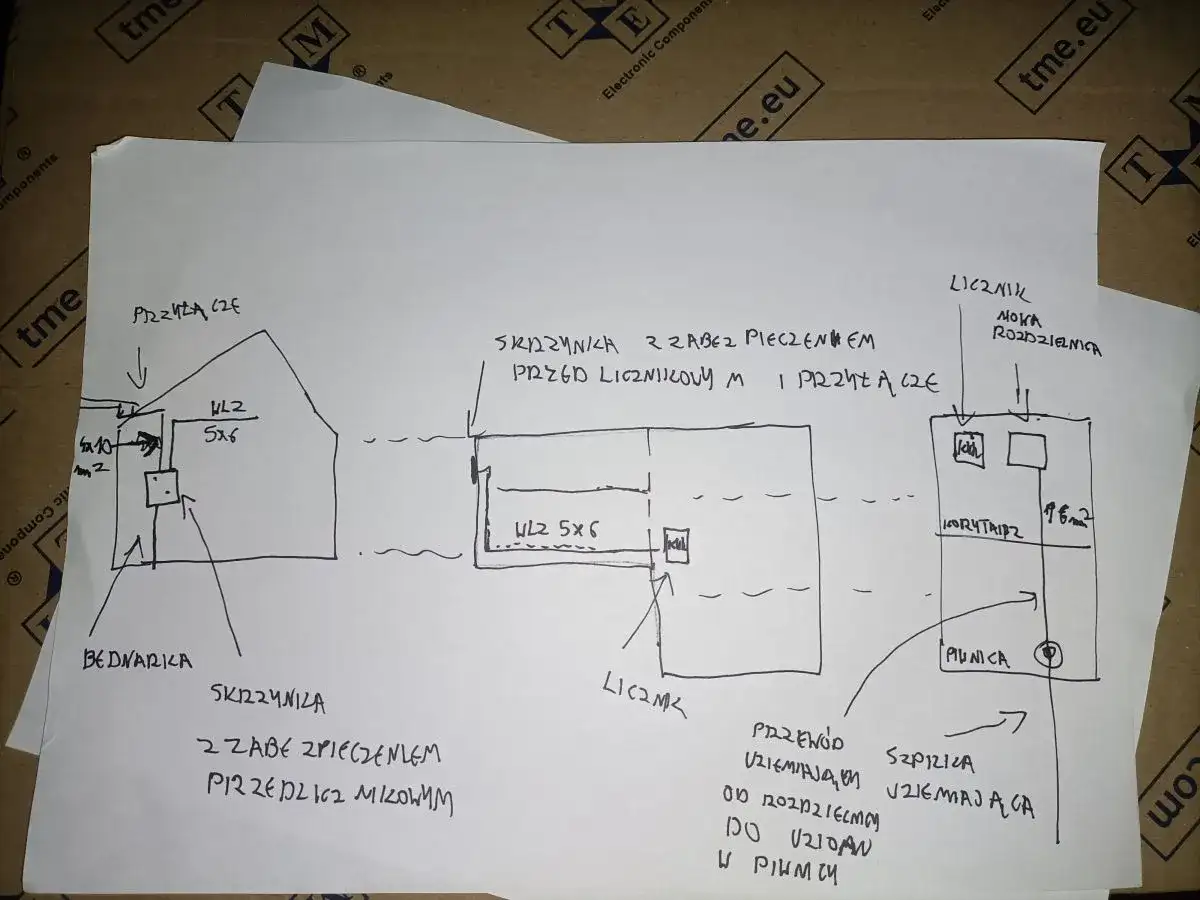 tme.eu
T M
®
T E
Electronic Components
tme.eu
tme.eu
T
Components
®
tme
PRZYŁĄCZE
WLZ
5x6
5x10
mm2
BEDNARKA
SKRZYNKA
Z ZABEZPIECZENIEM
PRZEDLICZNIKOWYM
SKRZYNKA Z ZABEZPIECZENIEM
PRZED LICZNIKOWYM I PRZYŁĄCZE
WLZ 5x6
kWh
LICZNIK
LICZNIK
NOWA
ROZDZIELNICA
kWh
KORYTARZ
16mm2
PIWNICA
PRZEWÓD
UZIEMIAJĄCY
OD ROZDZIELNICY
DO UZIOMU
W PIWNICY
SZPILKA
UZIEMIAJĄCA
com